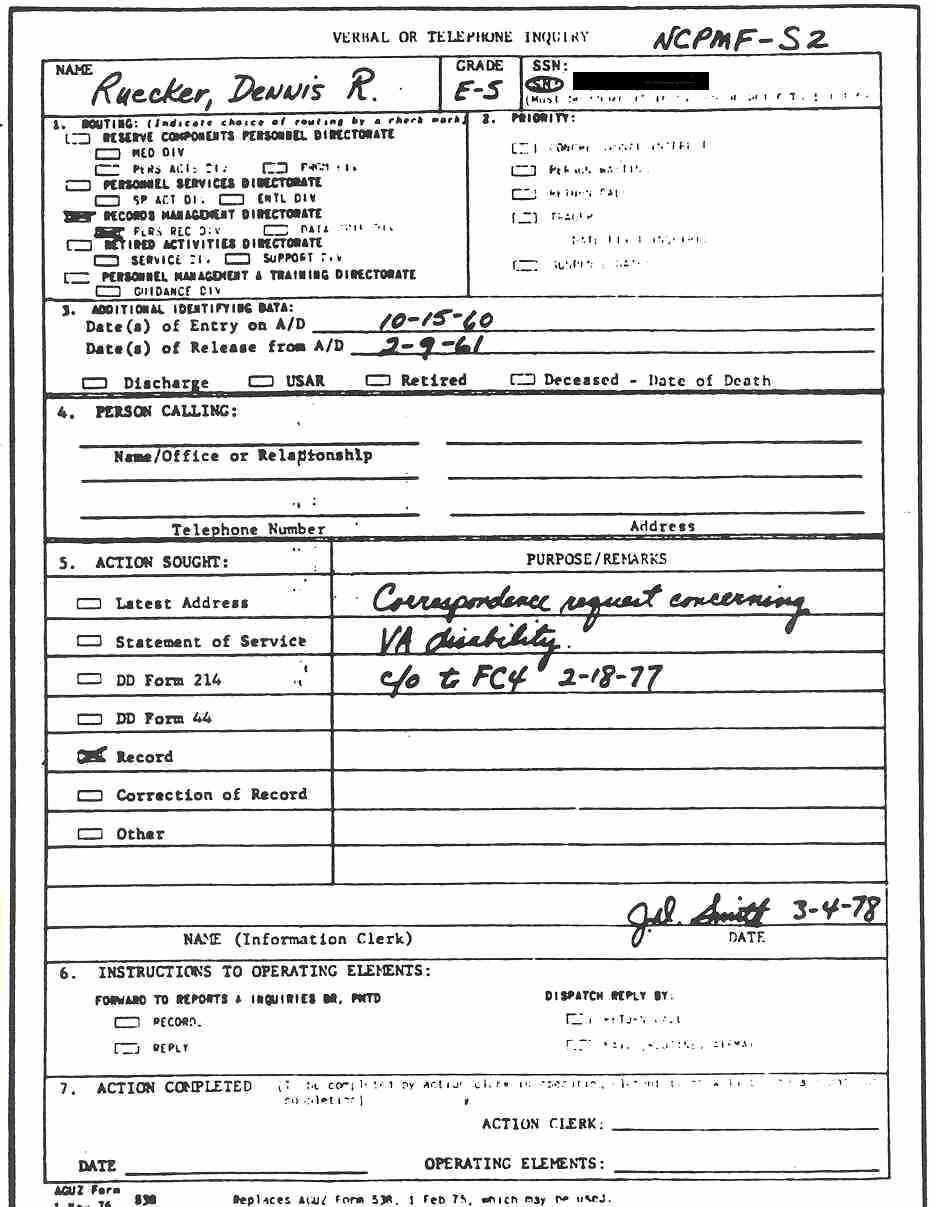 VERBAL OR TELEPHONE INQUIRY NCPMF-S2
NAME Ruecker, Dennis R. GRADE E-5 SSN:
1. ROUTING: (Indicate choice of routing by a check mark) 2. PRIORITY:
RESERVE COMPONENTS PERSONNEL DIRECTORATE
MED DIV
PERS ACTS DIV
PERSONNEL SERVICES DIRECTORATE
SP ACT DIV ENTL DIV
RECORDS MANAGEMENT DIRECTORATE
PERS REC DIV
RETIRED ACTIVITIES DIRECTORATE
SERVICE DIV SUPPORT DIV
PERSONNEL MANAGEMENT & TRAINING DIRECTORATE
GUIDANCE DIV
PERSON WAITING
RETURN CALL
TRACER
3. ADDITIONAL IDENTIFYING DATA:
Date(s) of Entry on A/D 10-15-60
Date(s) of Release from A/D 2-9-61
Discharge USAR Retired Deceased - Date of Death
4. PERSON CALLING:
Name/Office or Relationship
Telephone Number Address
5. ACTION SOUGHT: PURPOSE/REMARKS
Latest Address Correspondence request concerning
Statement of Service VA disability.
DD Form 214 c/o to FC4 2-18-77
DD Form 44
Record
Correction of Record
Other
Smith 3-4-78
NAME (Information Clerk) DATE
6. INSTRUCTIONS TO OPERATING ELEMENTS:
FORWARD TO REPORTS & INQUIRIES BR, PMTD DISPATCH REPLY BY:
RECORD. RETURN CALL
REPLY
7. ACTION COMPLETED (To be completed by action clerk
completion)
ACTION CLERK:
DATE OPERATING ELEMENTS:
AGUZ Form 538 Replaces AGUZ Form 538, 1 Feb 75, which may be used.
76